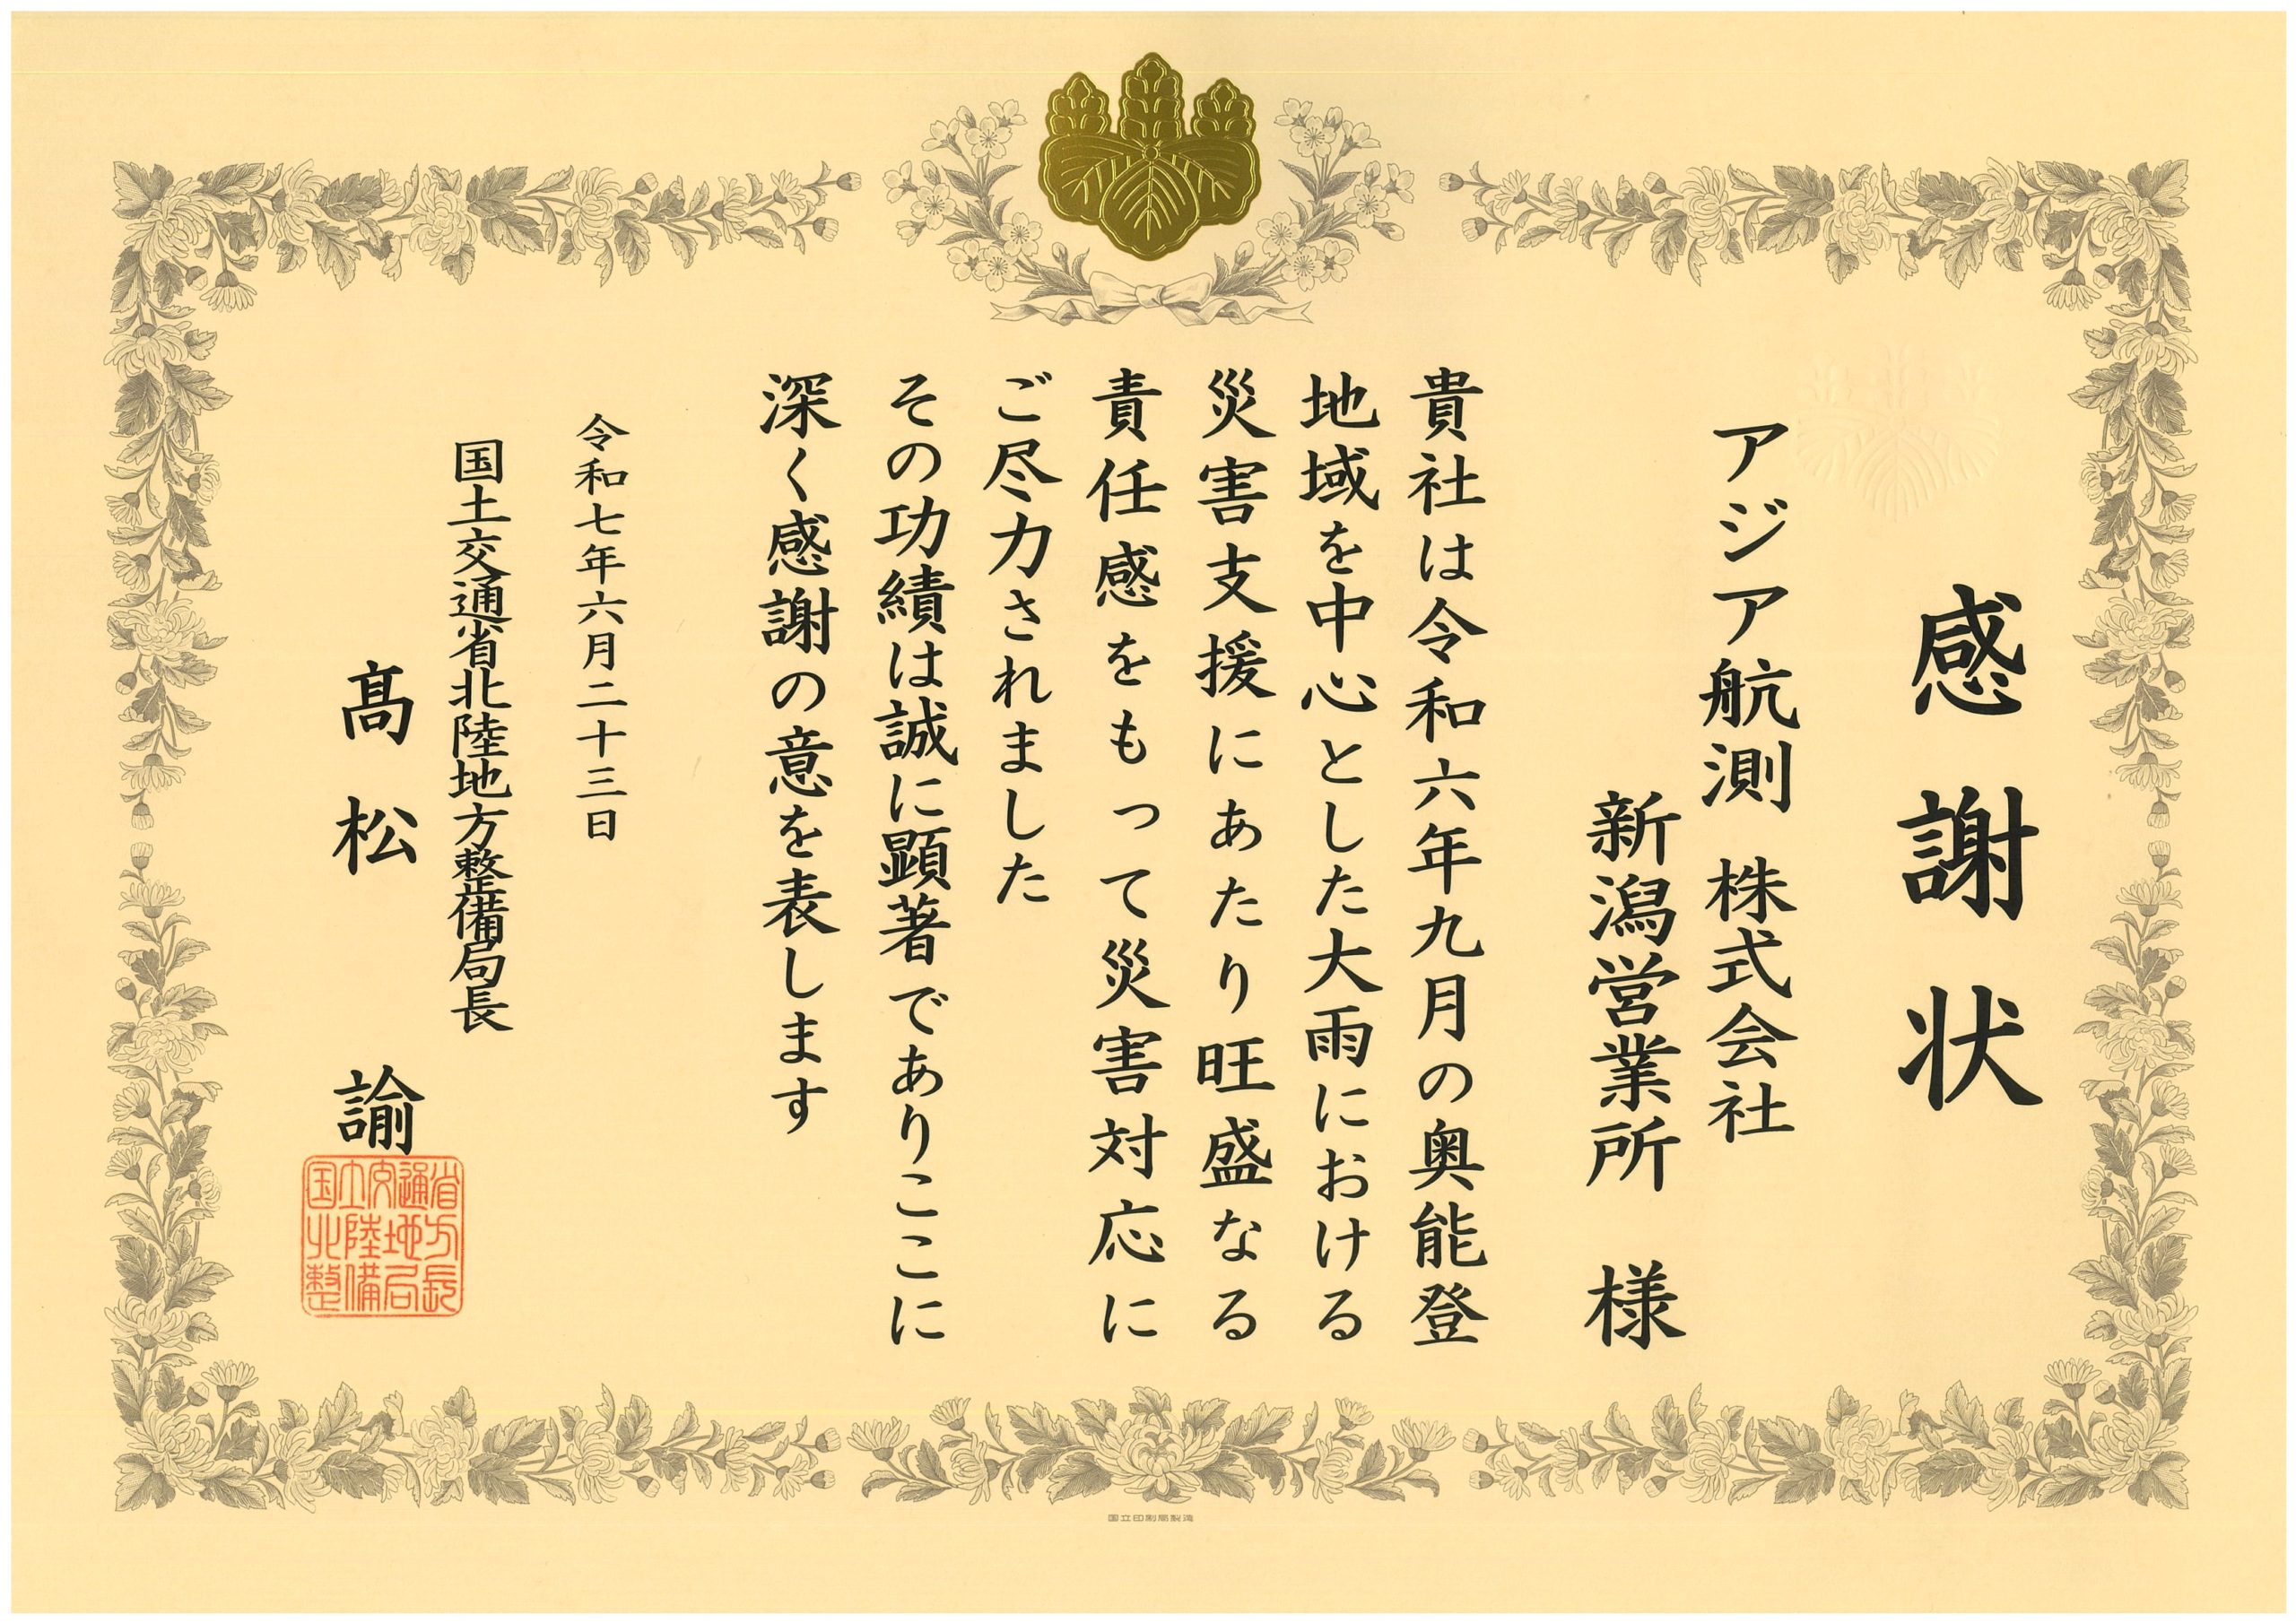 感謝状
アジア航測 株式会社
新潟営業所 様
貴社は令和六年九月の奥能登
地域を中心とした大雨における
災害支援にあたり旺盛なる
責任感をもって災害対応に
ご尽力されました
その功績は誠に顕著でありここに
深く感謝の意を表します
令和七年六月二十三日
国土交通省北陸地方整備局長
髙松 諭
国土交通省
北陸地方
整備局長
国立印刷局製造